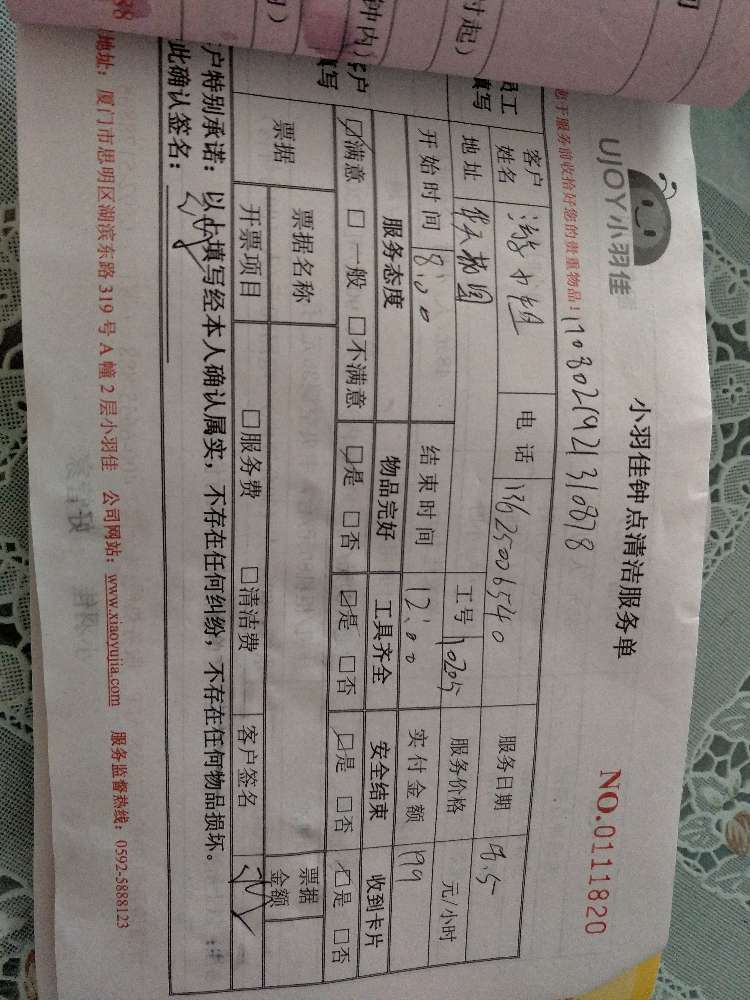 UJOY小羽佳
小羽佳钟点清洁服务单
NO.0111820
于服务前收恰好您的贵重物品!
客户姓名
电话 13625006540
服务日期 8.5
地址
工号 10205
服务价格 元/小时
开始时间 8:00
结束时间 12:00
实付金额 199
服务态度 物品完好 工具齐全 安全结束 收到卡片
满意 □一般 □不满意 是 □否 是 □否 是 □否 是 □否
票据 票据名称 票据金额
开票项目 □服务费 □清洁费 客户签名
户特别承诺:以上填写经本人确认属实,不存在任何纠纷,不存在任何物品损坏。
此确认签名:
地址:厦门市思明区湖滨东路 319 号 A 幢 2 层小羽佳 公司网站:www.xiaoyujia.com 服务监督热线:0592-5888123